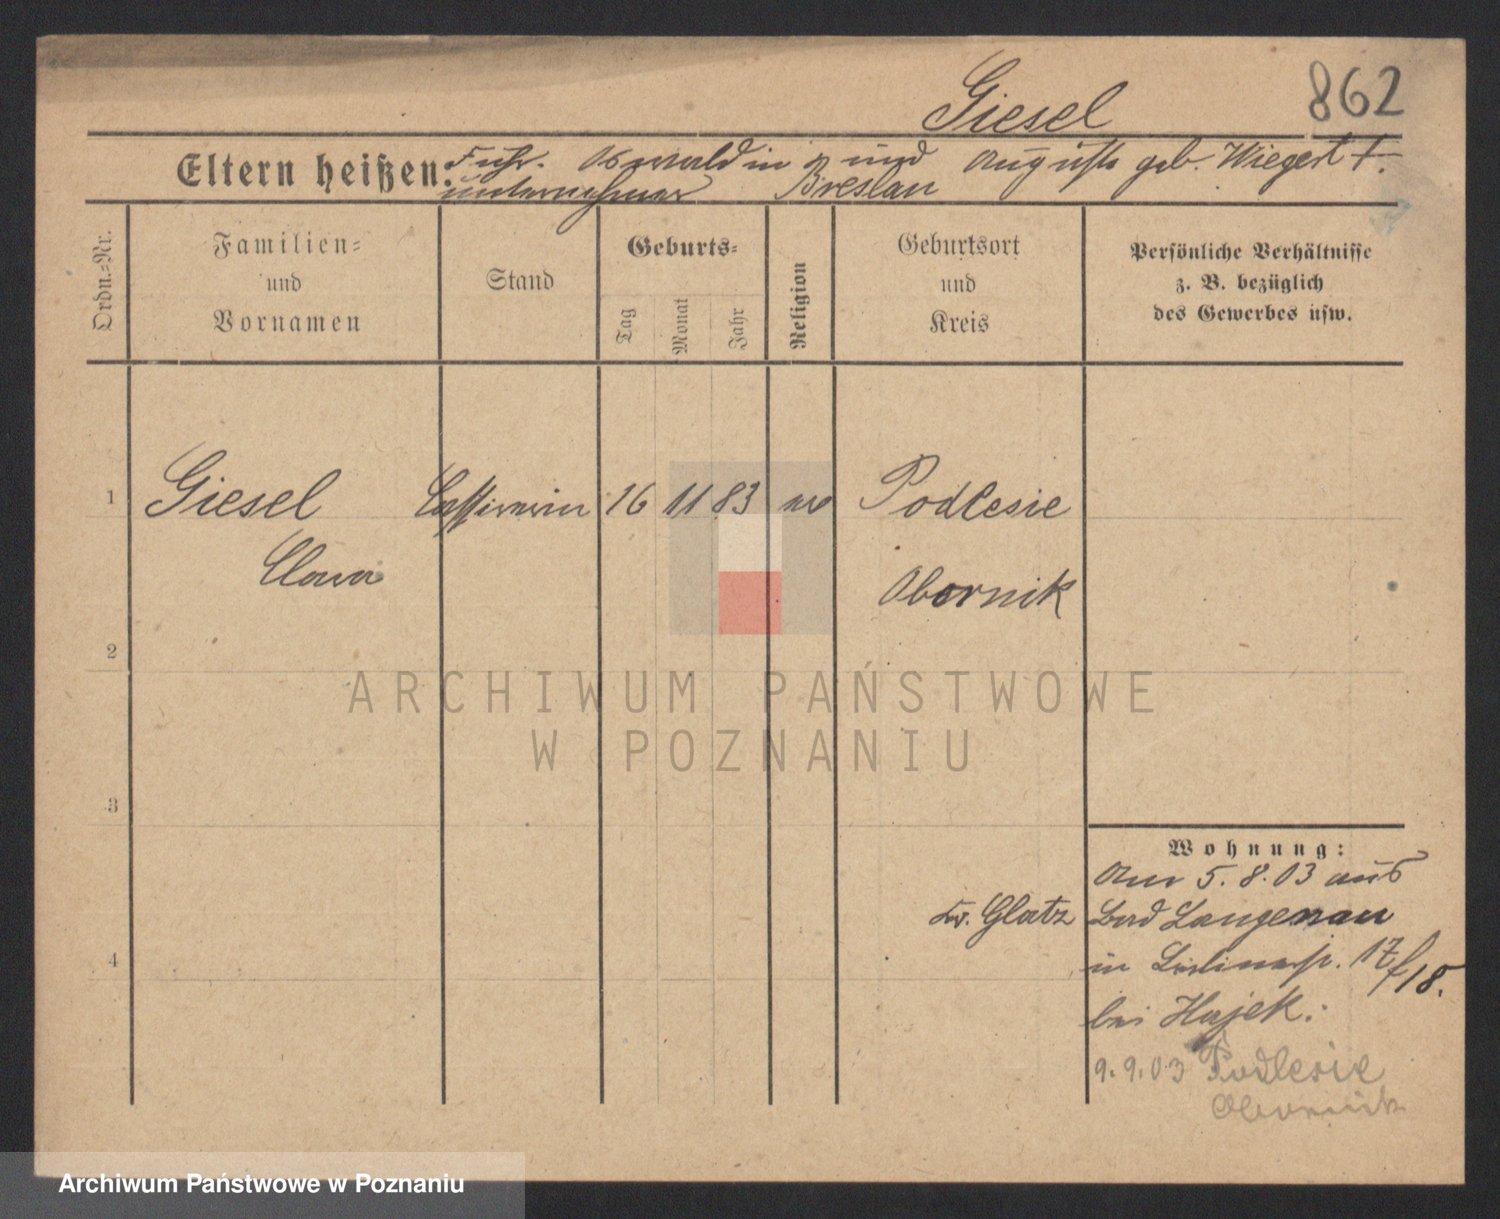 862
Giesel
Eltern heißen: Fuhr- Oswald in und Auguste geb. Wiegert †.
unternehmer Breslau
Ordn.-Nr.
Familien-
und
Vornamen
Stand
Geburts-
Tag
Monat
Jahr
Religion
Geburtsort
und
Kreis
Persönliche Verhältnisse
z. B. bezüglich
des Gewerbes usw.
1 Giesel Cassirerin 16 11 83 ev Podlesie
Clara
Obornik
2
3
4
Wohnung:
Am 5. 8. 03 aus
Kr. Glatz Bad Langenau
in 17/18.
bei Hajek.
9.9.03 Podlesie
Obornik
ARCHIWUM PAŃSTWOWE
W POZNANIU
Archiwum Państwowe w Poznaniu